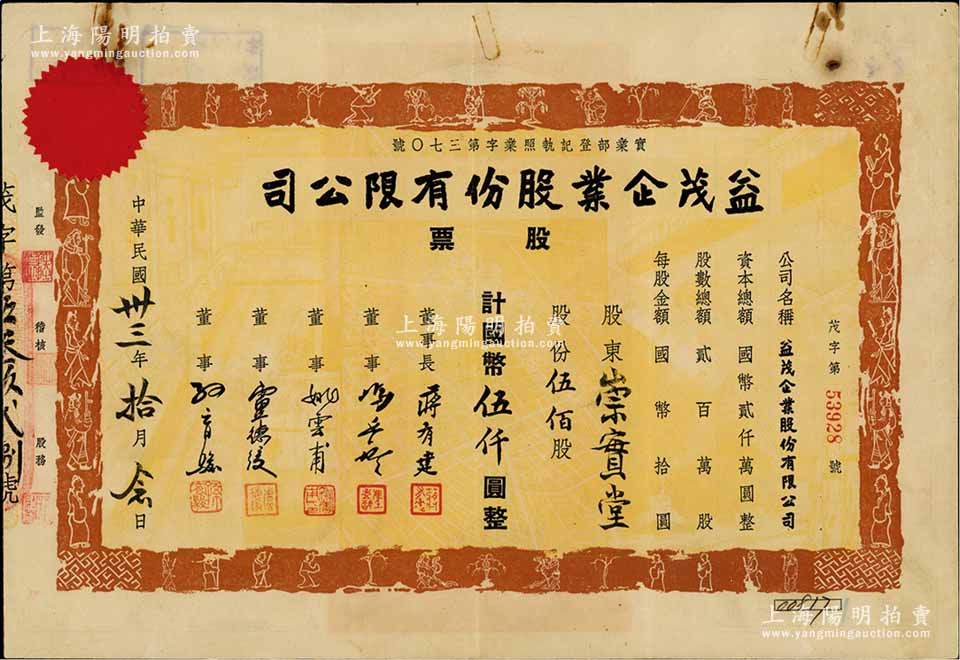 上海陽明拍賣
www.yangmingauction.com
上海陽明拍賣
www.yangmingauction.com
實業部登記執照業字第三七〇號
益茂企業股份有限公司
股票
茂字第53928號
公司名稱 益茂企業股份有限公司
資本總額 國幣貳仟萬圓整
股數總額 貳百萬股
每股金額 國幣拾圓
股東
股份伍佰股
計國幣伍仟圓整
董事長 蔣有建
董事
董事 姚雲甫
董事
董事
中華民國卅三年拾月念日
監發
稽核
股務
茂字第
號
上海陽明拍賣
www.yangmingauction.com
00817
上海陽明拍賣
www.yangmingauction.com